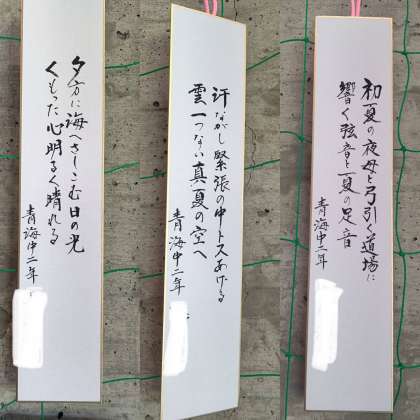 初夏の夜母と弓引く道場に
響く弦音と夏の足音
青海中二年
汗ながし緊張の中トスあげる
雲一つない真夏の空へ
青海中二年
夕方に海へさしこむ日の光
くもった心明るく晴れる
青海中二年